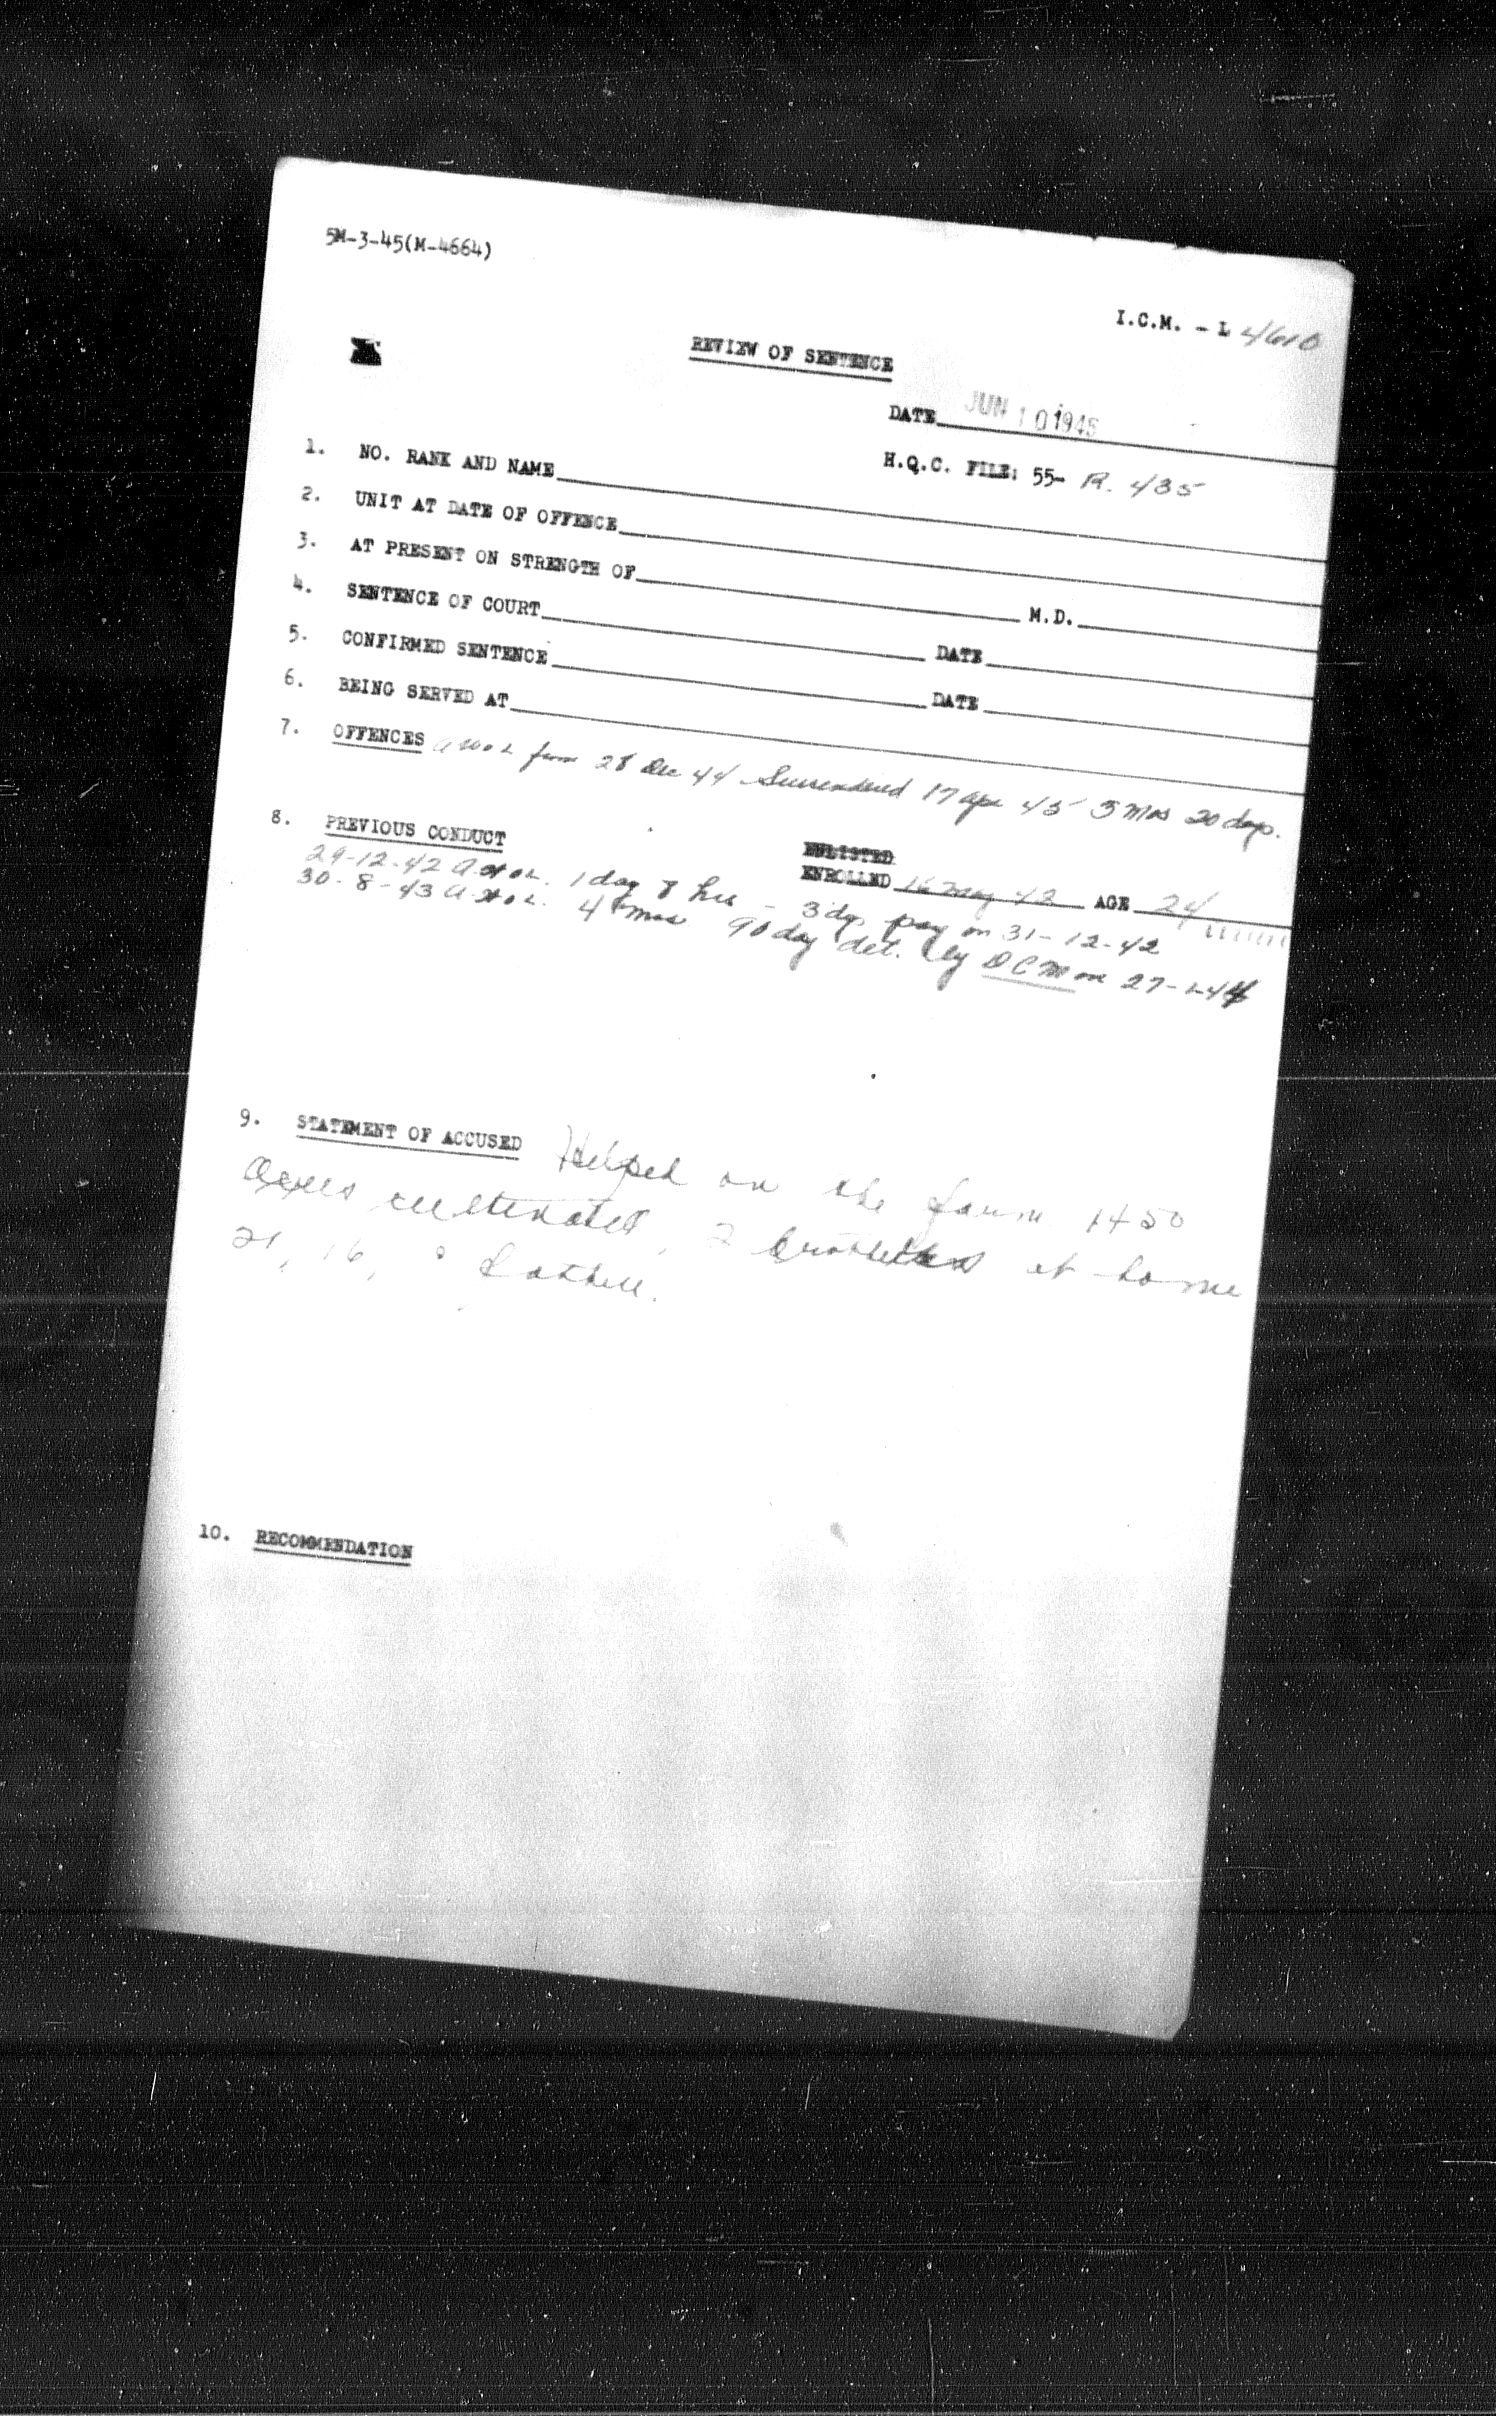 5M-3-45(M-4664)
I.C.M. - L 4610
REVIEW OF SENTENCE
DATE JUN 10 1945
H.Q.C. FILE: 55- R. 435
1. NO. RANK AND NAME
2. UNIT AT DATE OF OFFENCE
3. AT PRESENT ON STRENGTH OF M.D.
4. SENTENCE OF COURT DATE
5. CONFIRMED SENTENCE DATE
6. BEING SERVED AT
7. OFFENCES AWOL from 28 Dec 44 Surrendered 17 Apr 45 3 Mos 20 days.
8. PREVIOUS CONDUCT
ENLISTED
ENROLLED 16 May 42 AGE 24
29-12-42 AWOL. 1 day 8 hrs - 3 dys pay on 31-12-42
30-8-43 AWOL. 4 mos 90 day det. by DCM on 27-1-44
9. STATEMENT OF ACCUSED Helped on the farm 1450
acres cultivated, 2 brothers at home
21, 16, father.
10. RECOMMENDATION